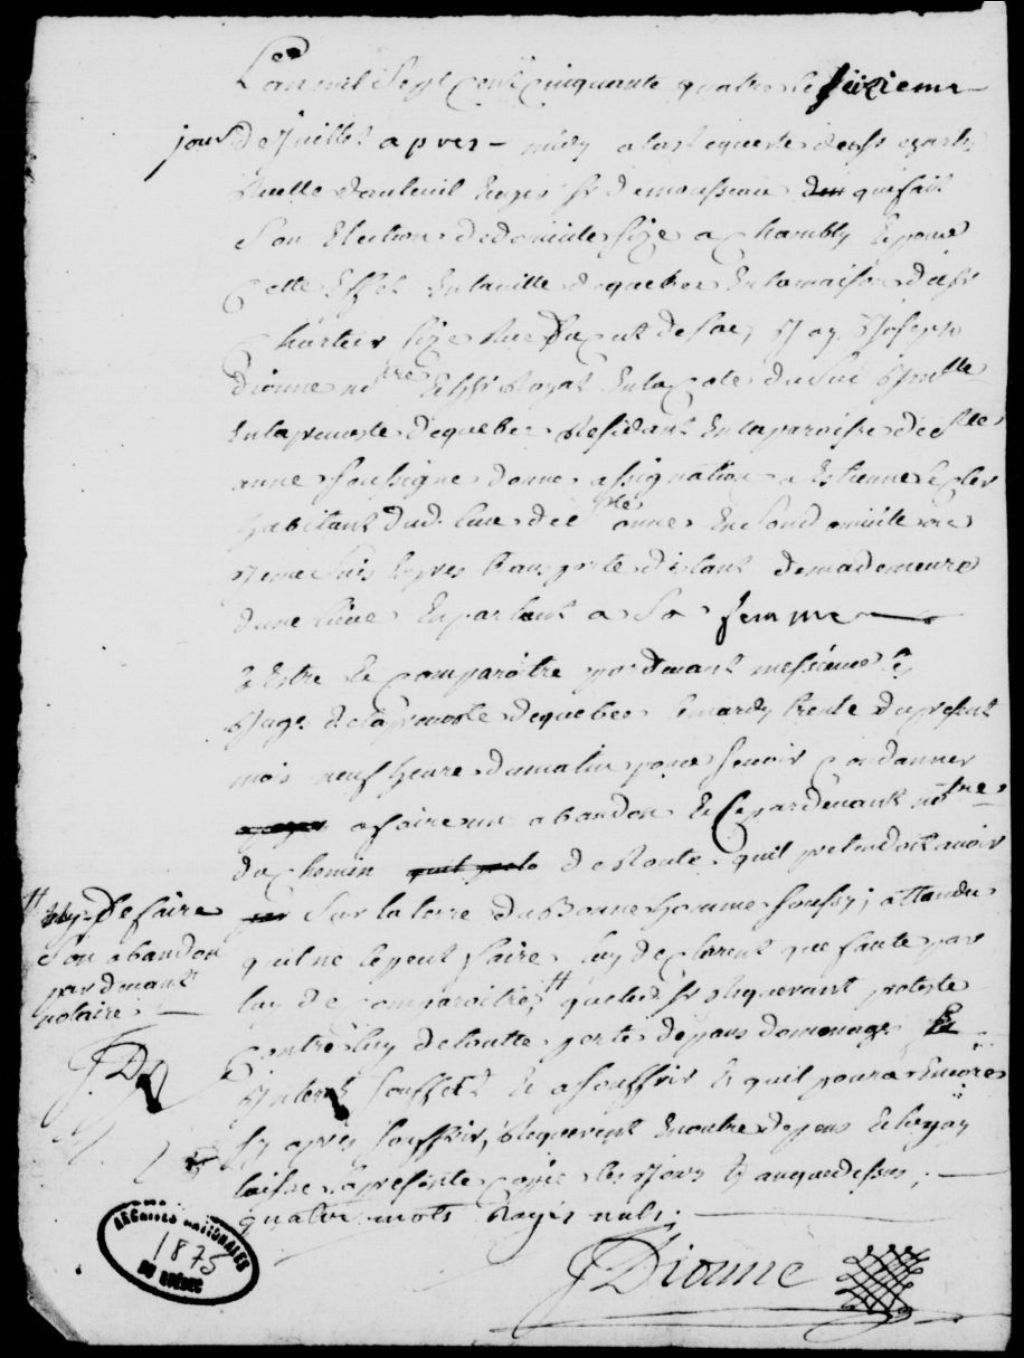 L'an mil Sept Cent Cinquante quatre le seizieme
jour de Juillet apres - midy a la Requeste de
Ruelle dauteuil Ecuyer Sr de monsseau qui fait
Son Election de domicile size a Chambly Et pour
Cette Effet En la ville de quebec En la maison du Sr
Chartier size Rue du Cul de Sac, Joseph
Dionne no^tre Et Royal En la Cote du Sud
En la prevoste de quebec Residant En la paroisse de Ste
anne Soussigne donne assignation a Estienne
habitant dud. lieu de Ste anne En Son domicile ou
Je me Suis Expres transporte distant de ma demeure
dune lieue En parlant a Sa femme
a Estre Et Comparoitre par devant messieurs
Juge de la prevoste de quebec le mardy trente du present
mois neuf heure du matin pour Se voir Condanner
a faire un abandon Et Ce par devant no^tre
du Chemin de Route quil pretendoit avoir
Sur la terre du Bonne homme Soussy; attendu
quil ne le peut faire, luy declarent que faute par
luy de Comparoitre, # que led Sr Requerant proteste
Contre luy de toutte perte depans domage Et
Interest Souffert Et a Souffrir Et quil poura Encore
Cy apres Souffrir, Requerent En outre depens Et luy ay
laisse la presente Copie les Jours Et an que dessus;
quatre mots Rayes nuls;
JDionne
# De faire
Son abandon
par devant
notaire
JD
ARCHIVES NATIONALES
1875
DU QUÉBEC